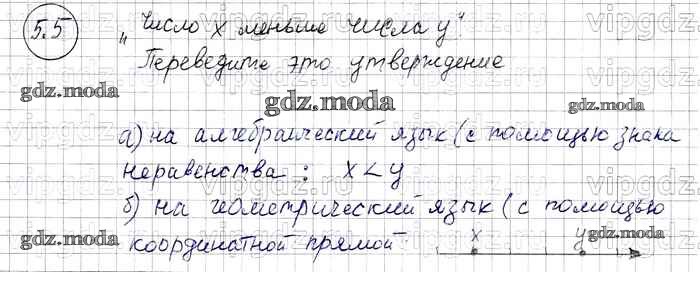 5.5 "Число x меньше числа y".
Переведите это утверждение
gdz.moda
gdz.moda
gdz.moda
а) на алгебраический язык (с помощью знака
неравенства: x < y
б) на геометрический язык (с помощью
gdz.moda
координатной прямой x y
gdz.moda